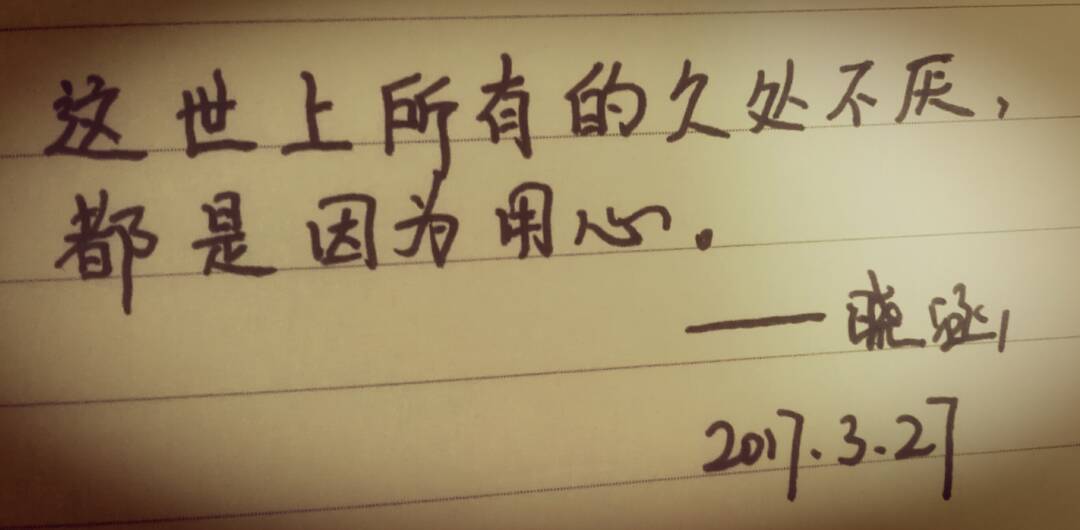 这世上所有的久处不厌，
都是因为用心。
——晓涵
2017.3.27